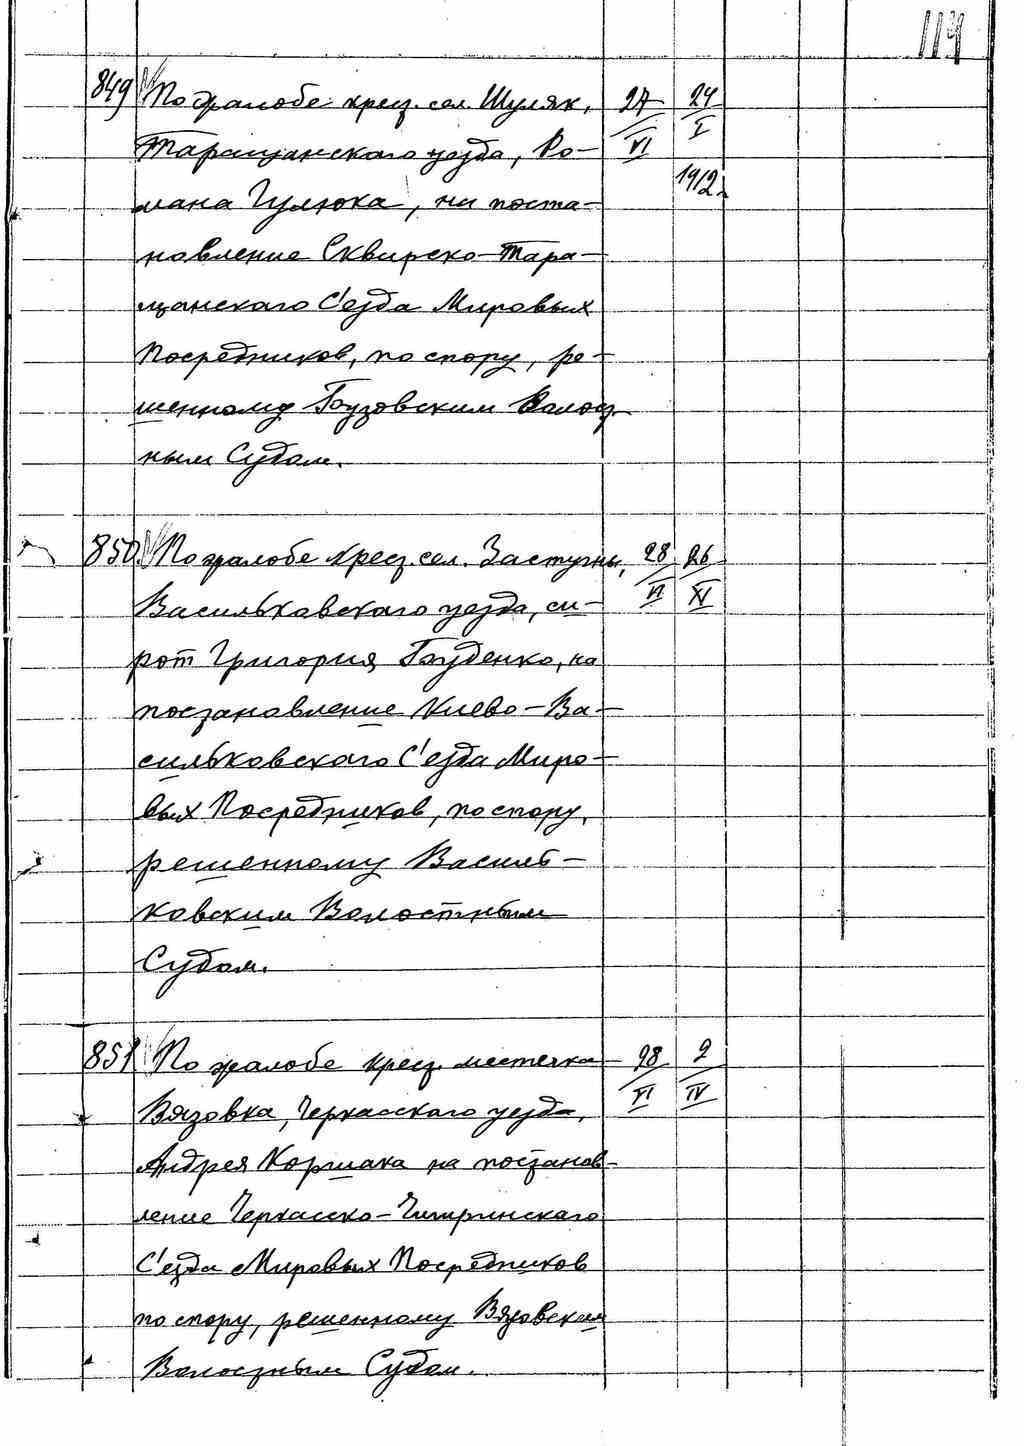 114
849 По жалобе крест. сел. Шуляк, 27/VI 24/I
Таращанского уезда, Ро- 1912 г.
мана Гулюка, на поста-
новление Сквирско-Тара-
щанского С'езда Мировых
Посредников, по спору, ре-
шенному Бузовским Волост-
ным Судом.
850 По жалобе крест. сел. Застугны, 28/VI 26/XI
Васильковского уезда, си-
рот Григория Бруденко, на
постановление Киево-Ва-
сильковского С'езда Миро-
вых Посредников, по спору,
решенному Василь-
ковским Волостным
Судом.
851 По жалобе крест. местечка 28/VI 2/IV
Вязовка, Черкасского уезда,
Андрея Коршака на постанов-
ление Черкасско-Чигиринского
С'езда Мировых Посредников
по спору, решенному Вязовским
Волостным Судом.